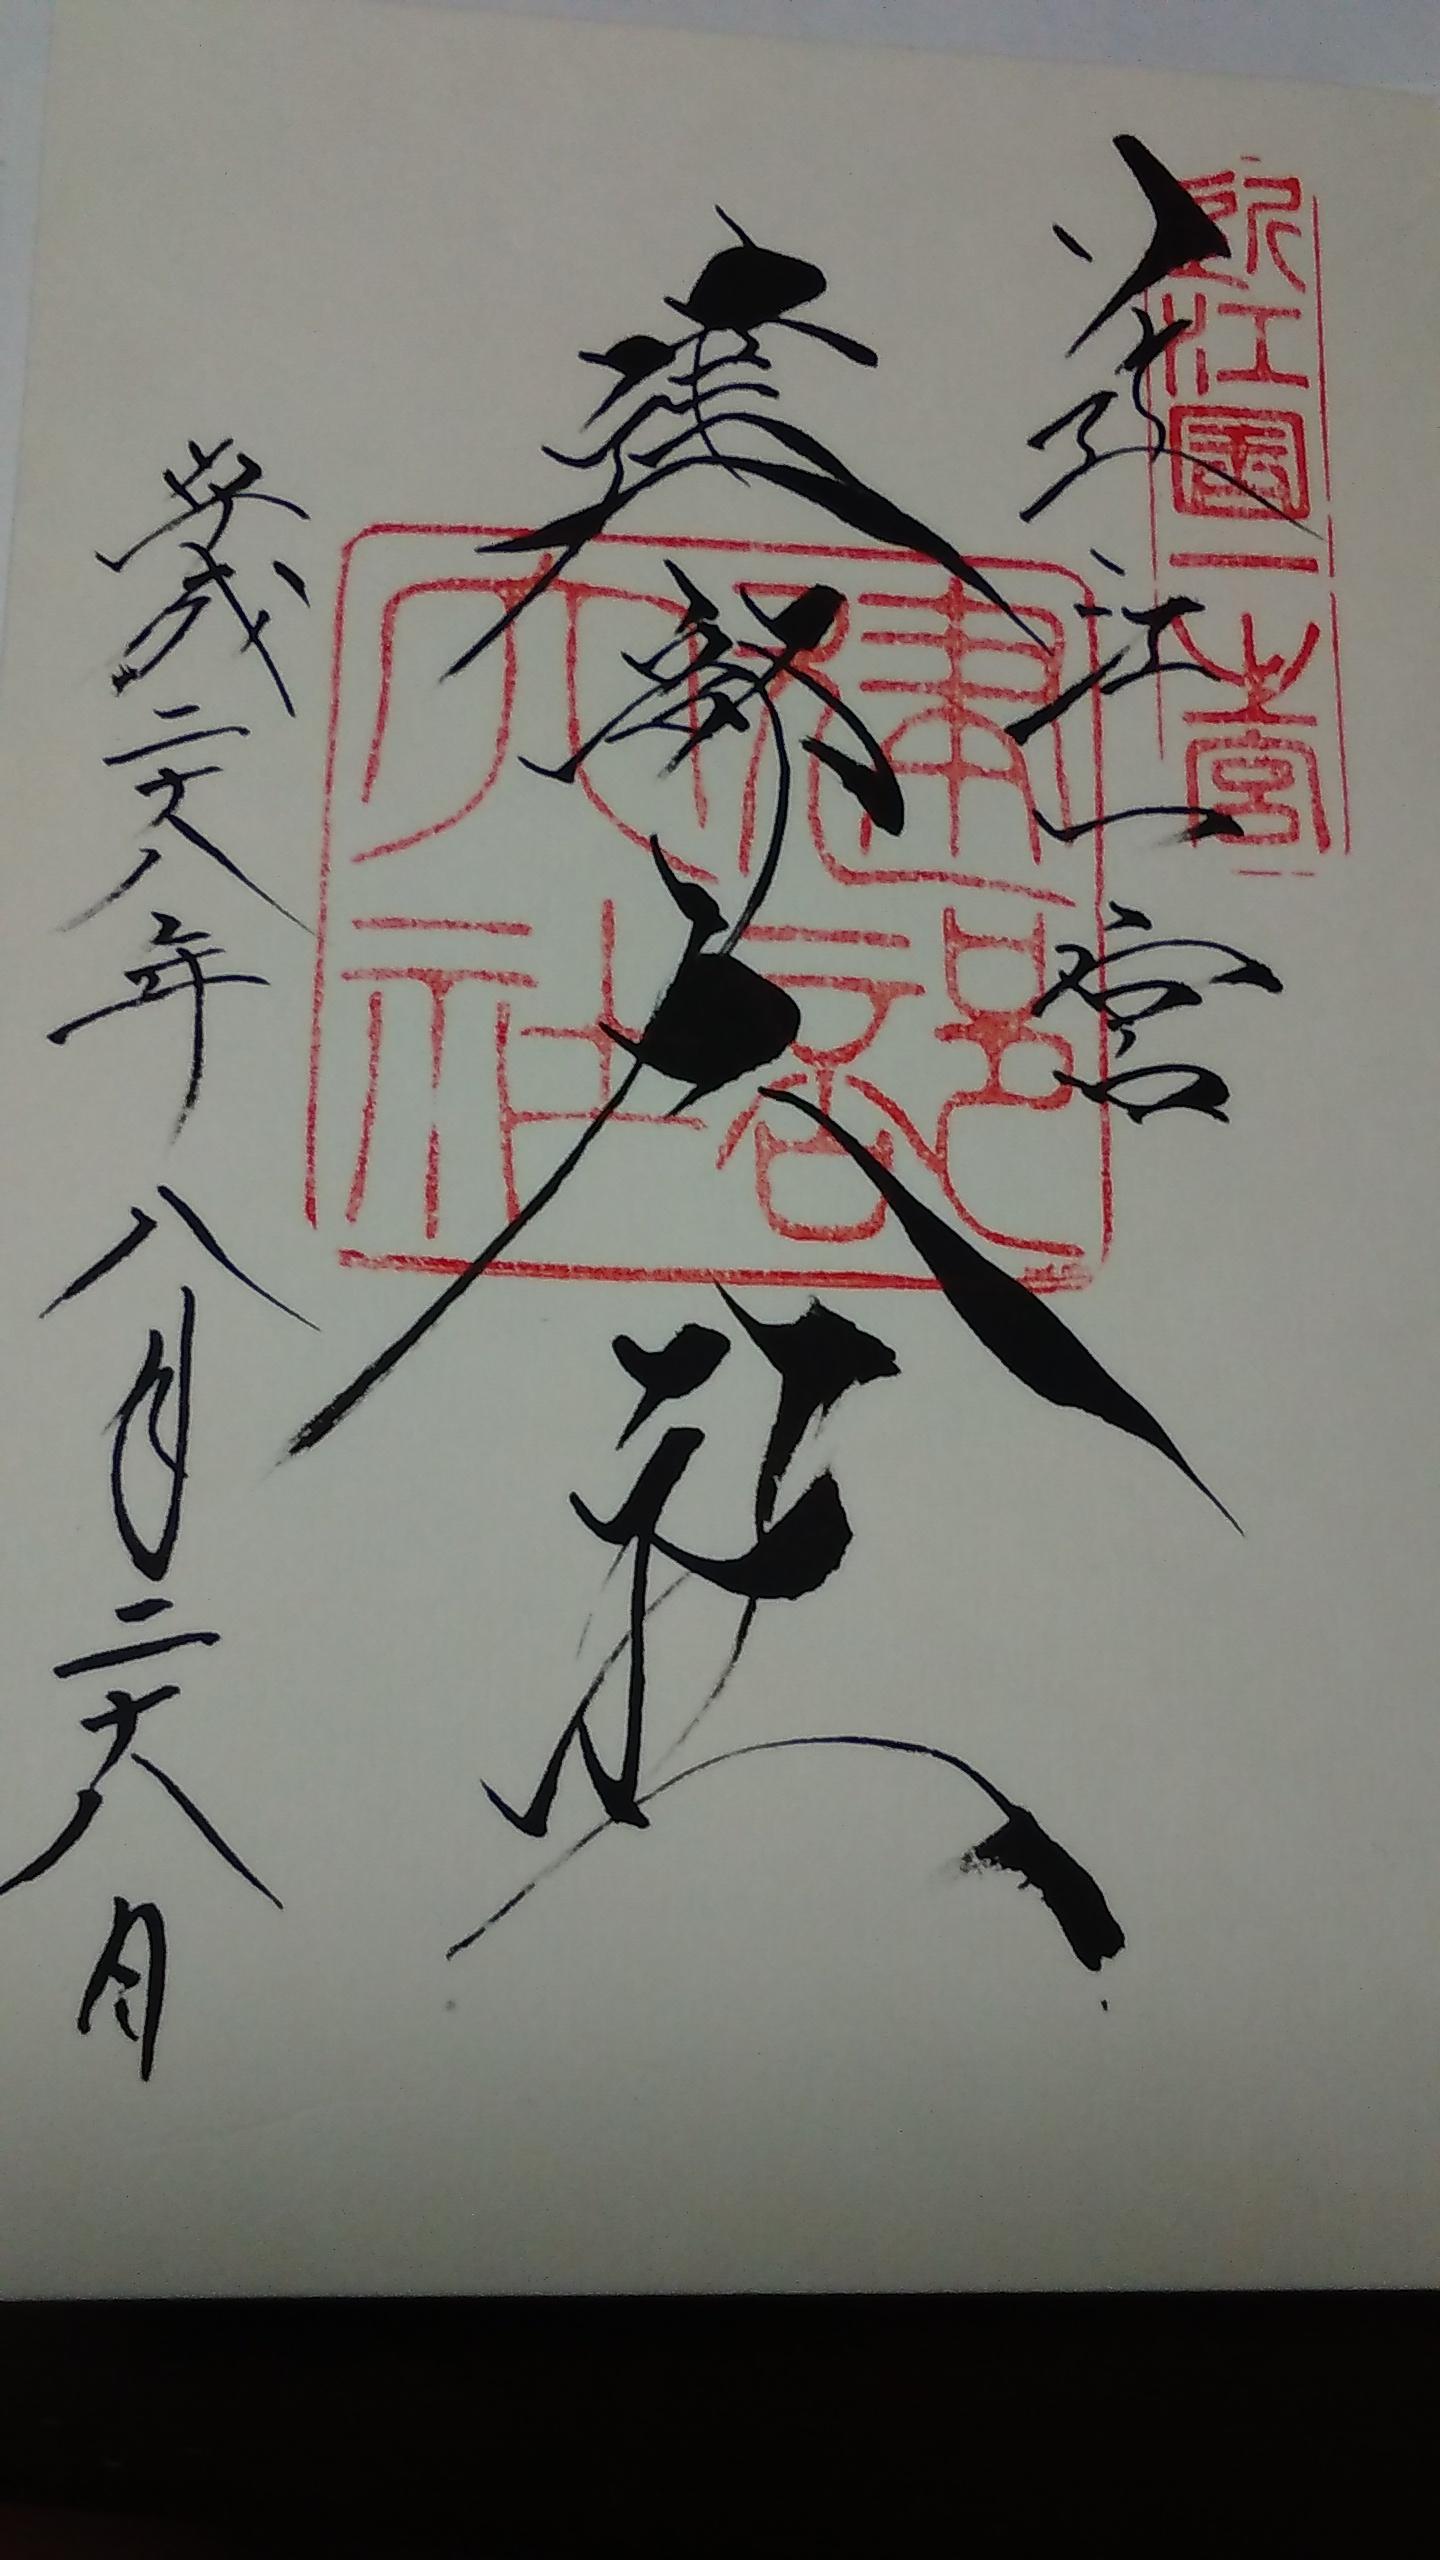 近江國一之宮
近江一宮
建部大社
建部大社
歳二十八年八月二十八日